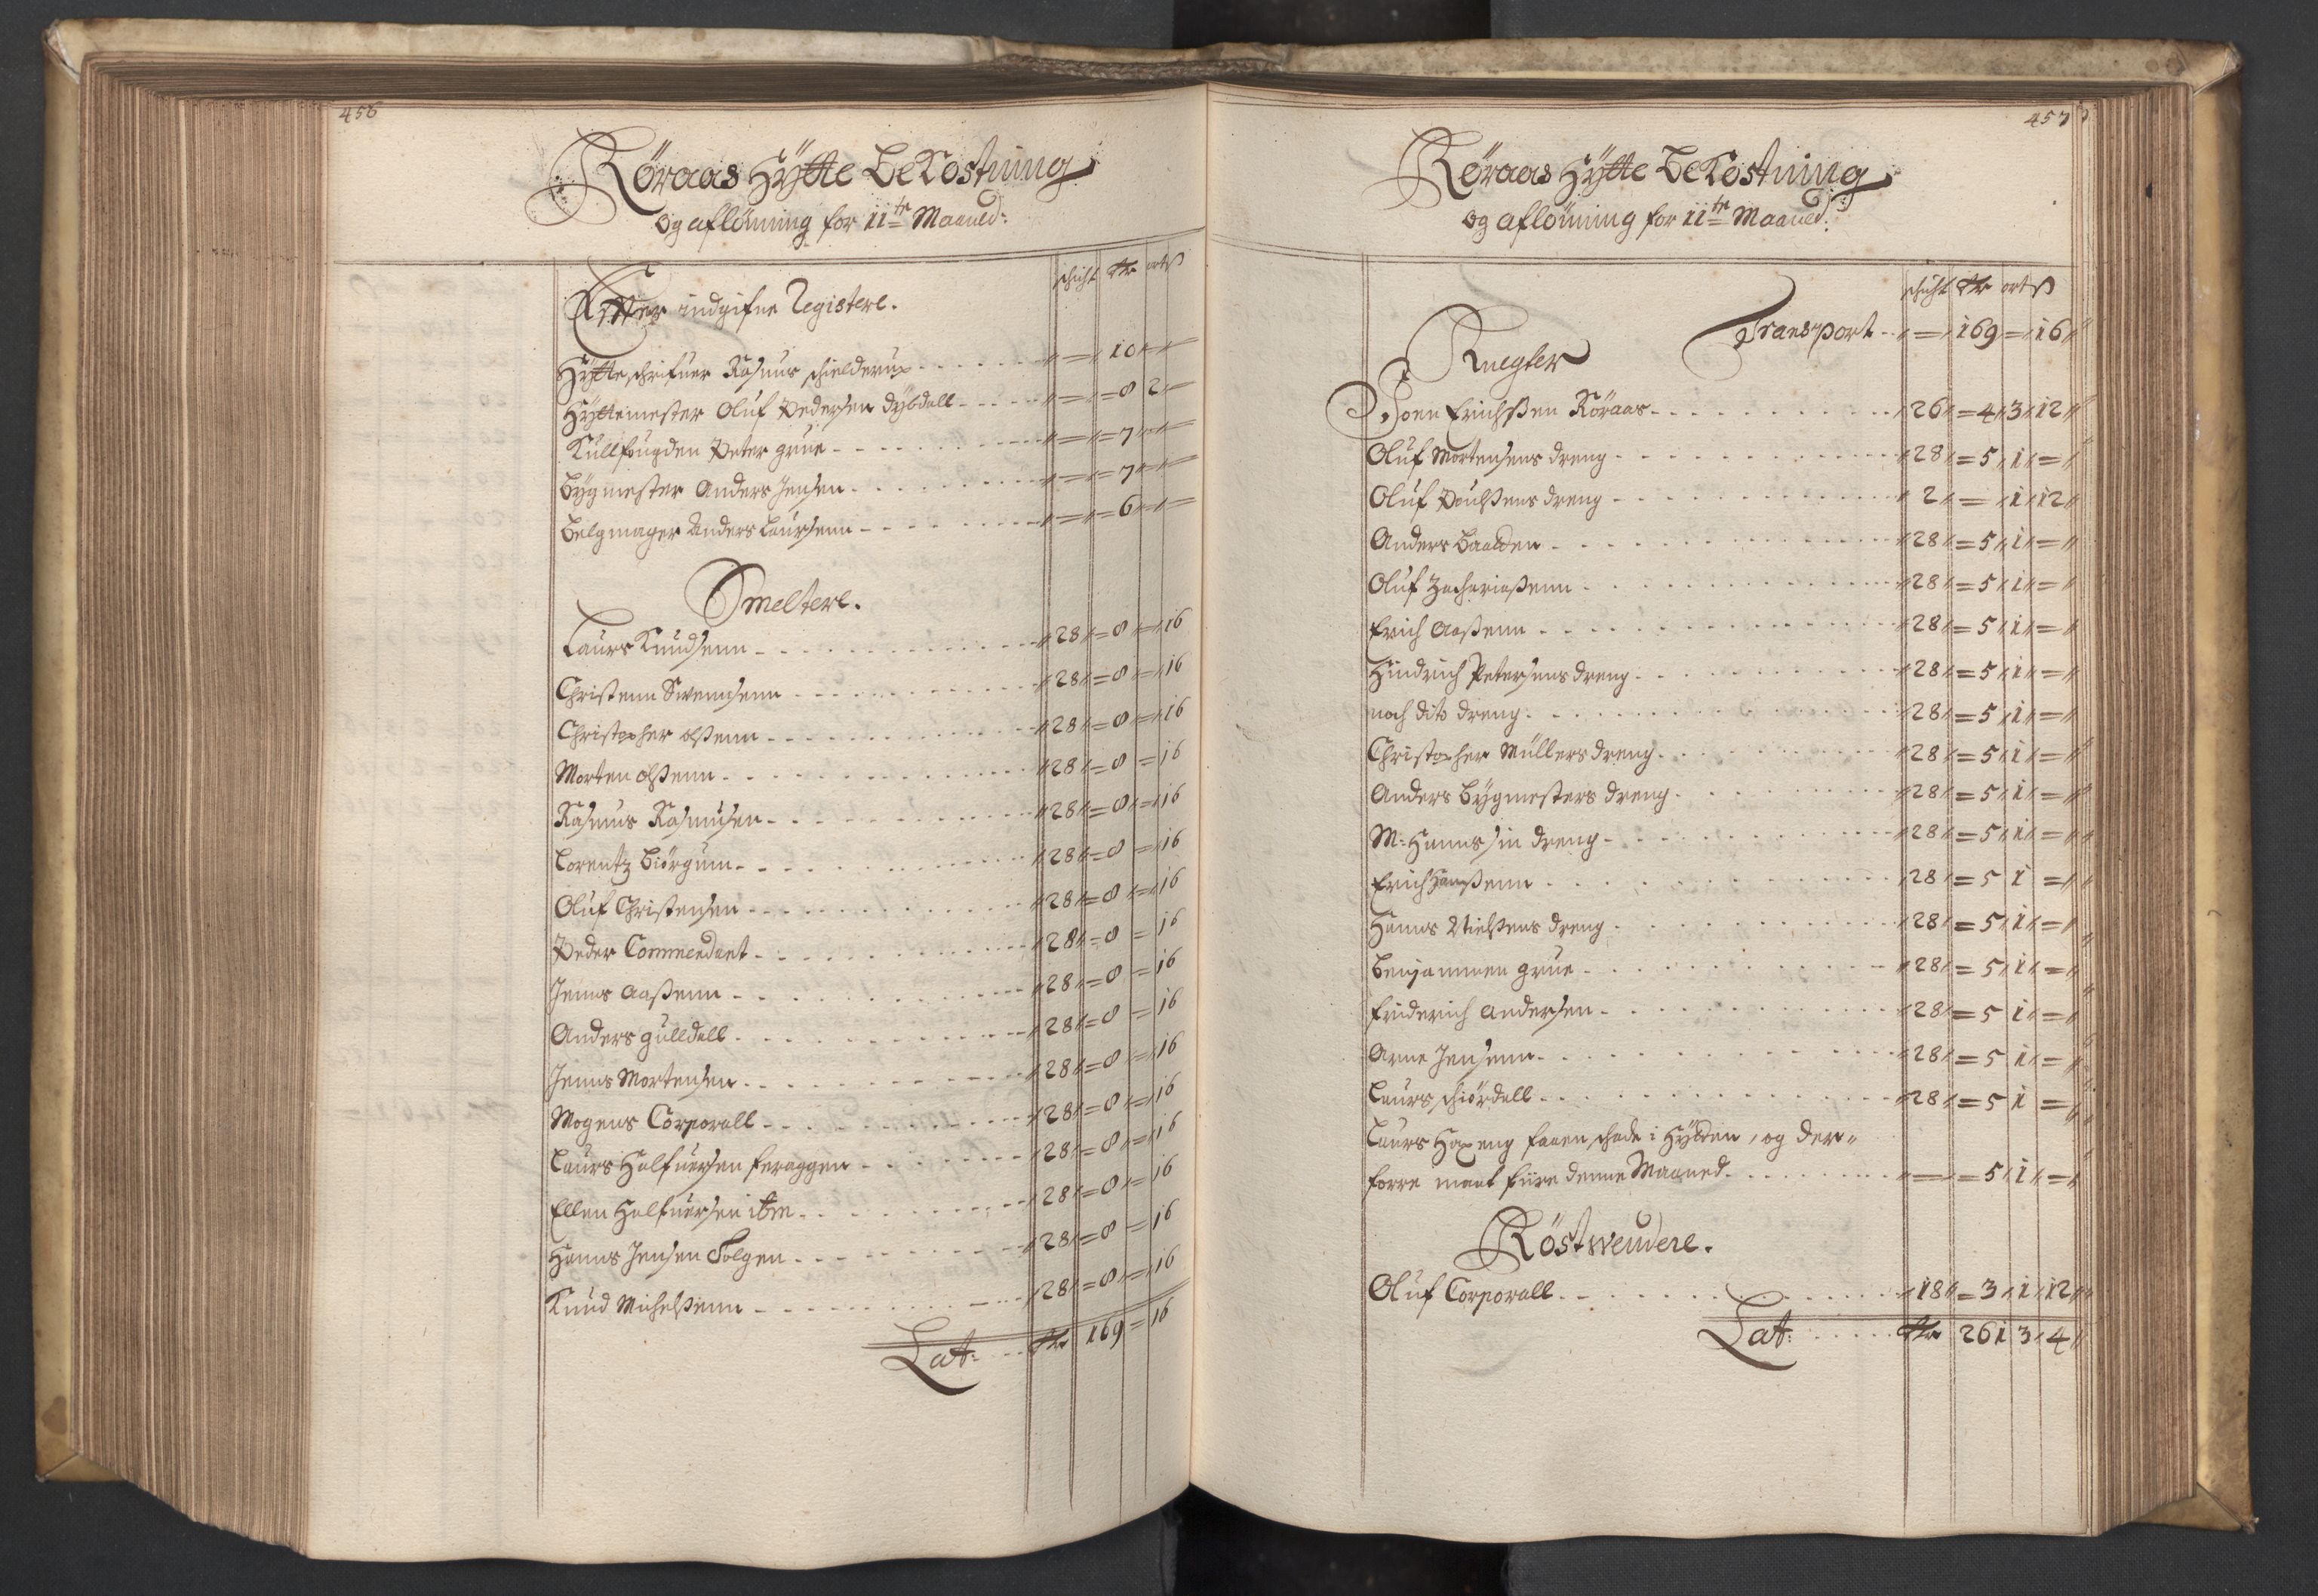 456
Röraas Hÿtte Bekostning
og aflönning for 11te Maaned:
schicht Rdr ort ß
Efter indgifne Registere.
Hÿtteschrifuer Rasmus schielderup - - - " = " 10 " = " =
Hÿttemester Oluf Pedersen dÿbdall - - - " = " = 8 2 " =
Kullfougden Peter grue - - - " = " = 7 " = " =
Bÿgmester Anders Jensen - - - " = " = 7 " = " =
Belgmager Anders Laursenn - - - " = " = 6 " = " =
Smeltere.
Laurs Knudsenn - - - " 28 " = 8 " = " 16
Christenn Swennsenn - - - " 28 " = 8 " = " 16
Christopher olßenn - - - " 28 " = 8 " = " 16
Morten olßenn - - - " 28 " = 8 = 16
Rasmus Rasmusen - - - " 28 " = 8 " = " 16
Lorentz Biörgum - - - " 28 " = 8 = " 16
Oluf Christensen - - - " 28 " = 8 " = " 16
Peder Commendant - - - " 28 " = 8 = 16
Jenns aaßenn - - - " 28 " = 8 = 16
Anders gulldall - - - " 28 " = 8 = 16
Jenns Mortensen - - - " 28 " = 8 " = " 16
Mogens Corporall - - - " 28 " = 8 " = " 16
Laurs Halfuersen feraggen - - - " 28 " = 8 " = " 16
Ellen Halfuersen itm - - - " 28 " = 8 " = 16
Hanns Jensen Tolgen - - - " 28 " = 8 = 16
Knud Michelßenn - - - " 28 " = 8 " = " 16
Lat: - - Rdr 169 = 16
457
Röraas Hÿtte Bekostning
og aflönning for 11te Maaned:
schicht Rdr ort ß
Transport - - " = " 169 = " 16 "
Knegter
Joen Erichßen Röraas - - - " 26 " = 4 " 3 " 12 "
Oluf Mortensens dreng - - - " 28 " = 5 " 1 " = "
Oluf Poulßens dreng - - - " 2 " = " 1 " 12 "
Anders Baalden - - - " 28 " = 5 " 1 " = "
Oluf Zachariaßenn - - - " 28 " = 5 " 1 " = "
Erich aaßenn - - - " 28 " = 5 " 1 " = "
Hindrich Petersens dreng - - - " 28 " = 5 " 1 " = "
noch dito dreng - - - " 28 " = 5 " 1 " = "
Christopher Müllers dreng - - - " 28 " = 5 " 1 " = "
Anders Bÿgmesters dreng - - - " 28 " = 5 " 1 " = "
M: Hanns sin dreng - - - " 28 " = 5 " 1 " = "
Erich Hanßenn - - - " 28 " = 5 1 = "
Hanns Nielßens dreng - - - " 28 " = 5 " 1 " = "
Benjammen grue - - - " 28 " = 5 " 1 " = "
Friderich Andersen - - - " 28 " = 5 1 " = "
Arne Jensenn - - - " 28 " = 5 1 " = "
Laurs schiördall - - - " 28 " = 5 1 = "
Laurs faaen schade i Hÿtten, og der=
forre maat fiire denne Maaned - - - " = " = 5 " 1 " = "
Röstwendere.
Oluf Corporall - - - " 18 " = 3 " 1 " 12 "
Lat: - - - Rdr 261 3 " 4 "